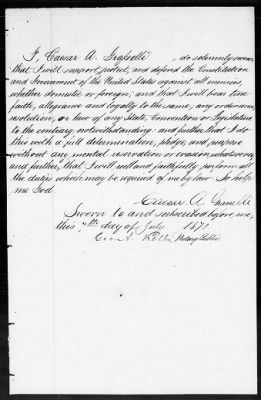 I, Caesar A. Grasselli, do solemnly swear
that I will support, protect, and defend the Constitution
and Government of the United States against all enemies,
whether domestic or foreign; and that I will bear true
faith, allegiance and loyalty to the same; any ordinance,
resolution, or law of any State, Convention or Legislature
to the contrary notwithstanding: and further, that I do
this with a full determination, pledge, and purpose
without any mental reservation or evasion whatsoever;
and further, that I will well and faithfully perform all
the duties which may be required of me by law. So help
me God.
Caesar A. Grasselli
Sworn to and subscribed before me,
this 7th day of July 1871
Notary Public